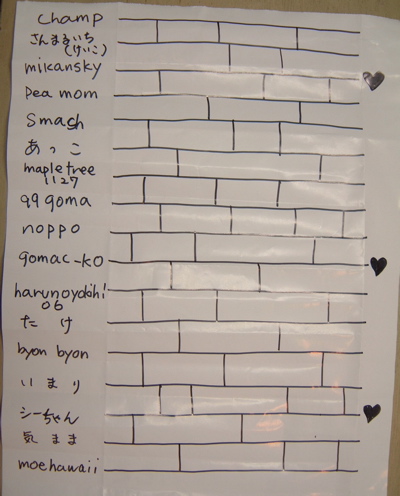 champ
さんまるいち
(けいこ)
mikansky
pea mom
smash
あっこ
mapletree
1127
qq goma
noppo
gomac-ko
harunoyokihi
06
たけ
byon byon
いまり
シーちゃん
気まま
moehawaii